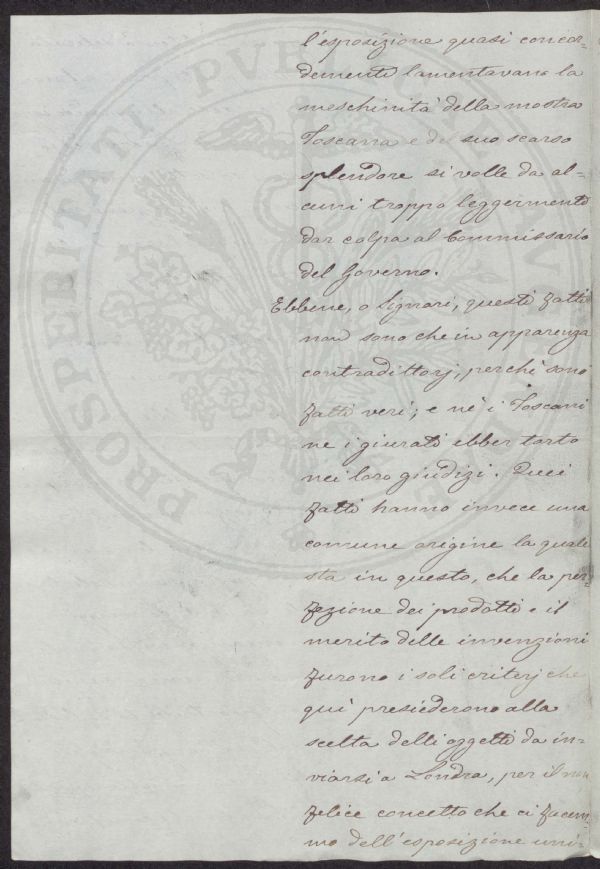 l'esposizione quasi concor=
demente lamentavano la
meschinità della mostra
Toscana e del suo scarso
splendore si volle da al=
cuni troppo leggermente
dar colpa al Commissario
del Governo.
Ebbene, o Signori, questi fatti
non sono che in apparenza
contradittorj, perchè sono
fatti veri; e nè i Toscani
ne i giurati ebber torto
nei loro giudizi. Quei
fatti hanno invece una
comune origine la quale
sta in questo, che la per=
fezione dei prodotti e il
merito delle invenzioni
furono i soli criterj che
qui presiederono alla
scelta delli oggetti da in=
viarsi a Londra, per il non
felice concetto che ci facem=
mo dell'esposizione uni=
PROSPERITATI PVBL